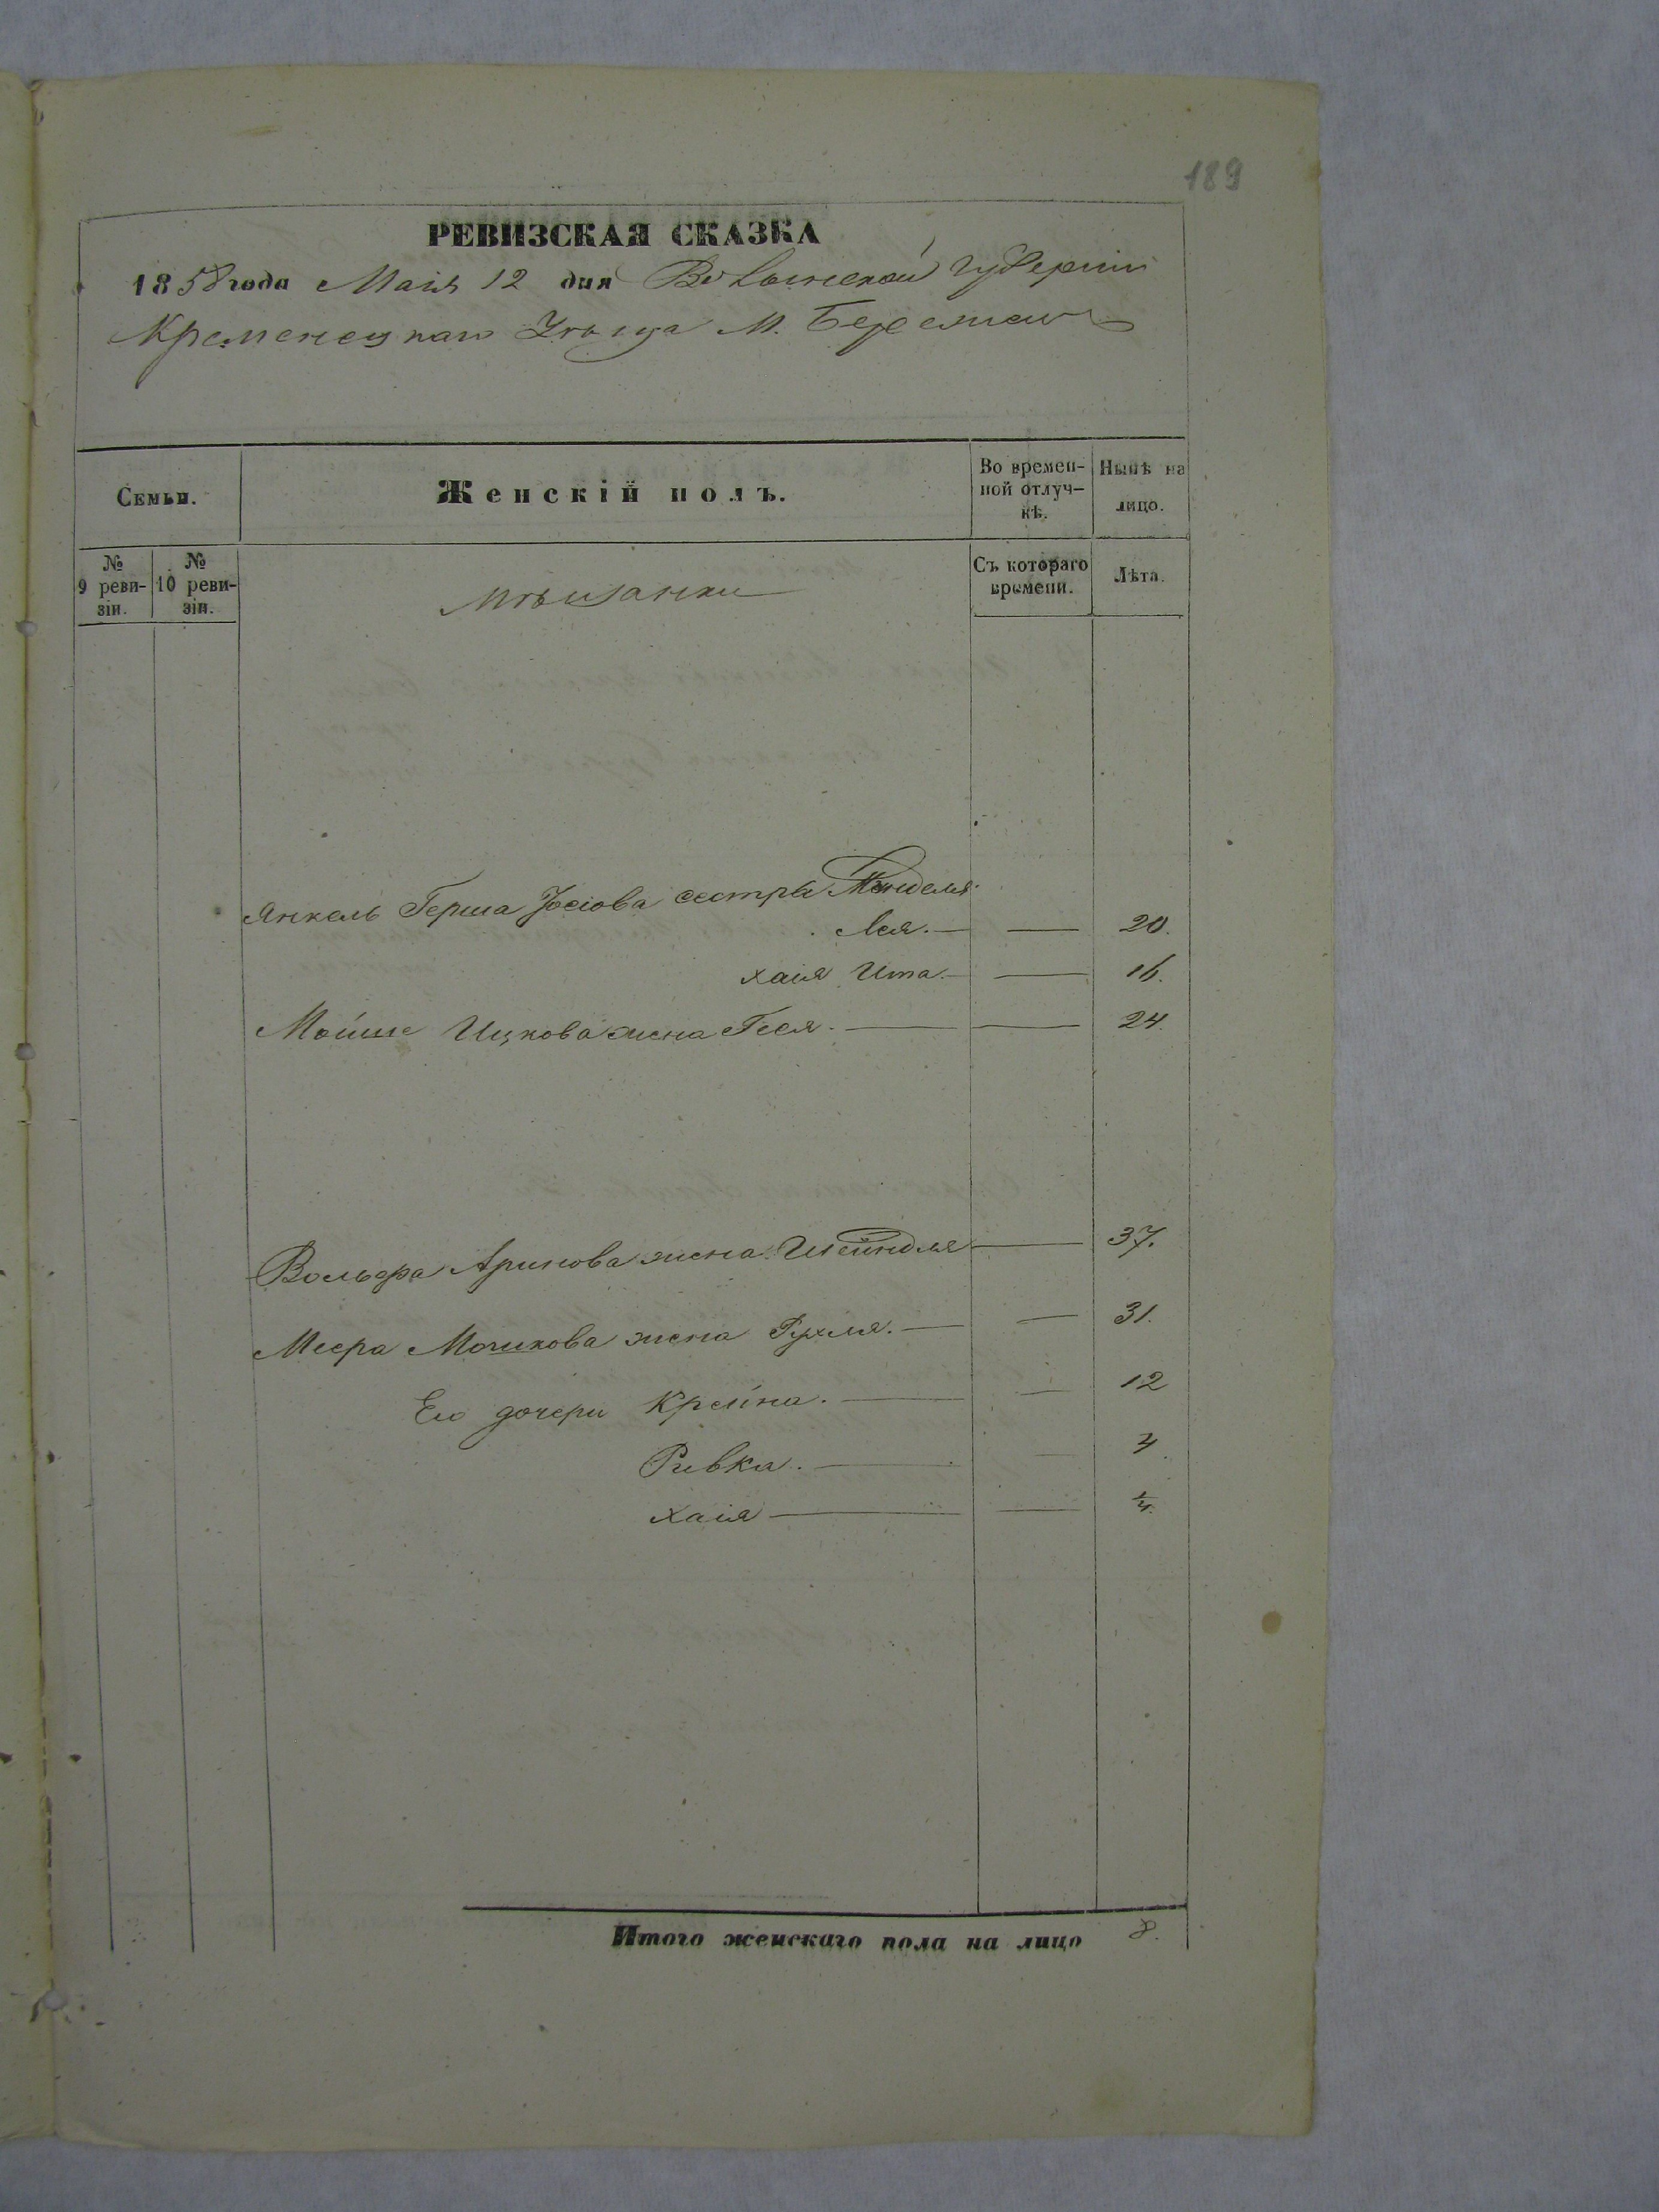 189
РЕВИЗСКАЯ СКАЗКА
1858 года Маія 12 дня Волынской Губерніи
Кременецкаго Уѣзда М. Бережецъ
Семьи.
Женскій полъ.
Во времен-
ной отлуч-
кѣ.
Нынѣ на
лицо.
№
9 реви-
зіи.
№
10 реви-
зіи.
Мѣщанки
Съ котораго
времени.
Лѣта.
Янкель Герша Іосіова сестры Менделя
Лея. — — 20.
Хаія Ита. — — 16.
Мойше Ицкова жена Геся. — — 24.
Вольфа Аринова жена Шейндля — 37.
Меера Мошкова жена Рухля. — — 31.
Его дочери Крейна. — — 12
Ривка. — — 4.
Хаія — — 1/4.
Итого женскаго пола на лицо 8.